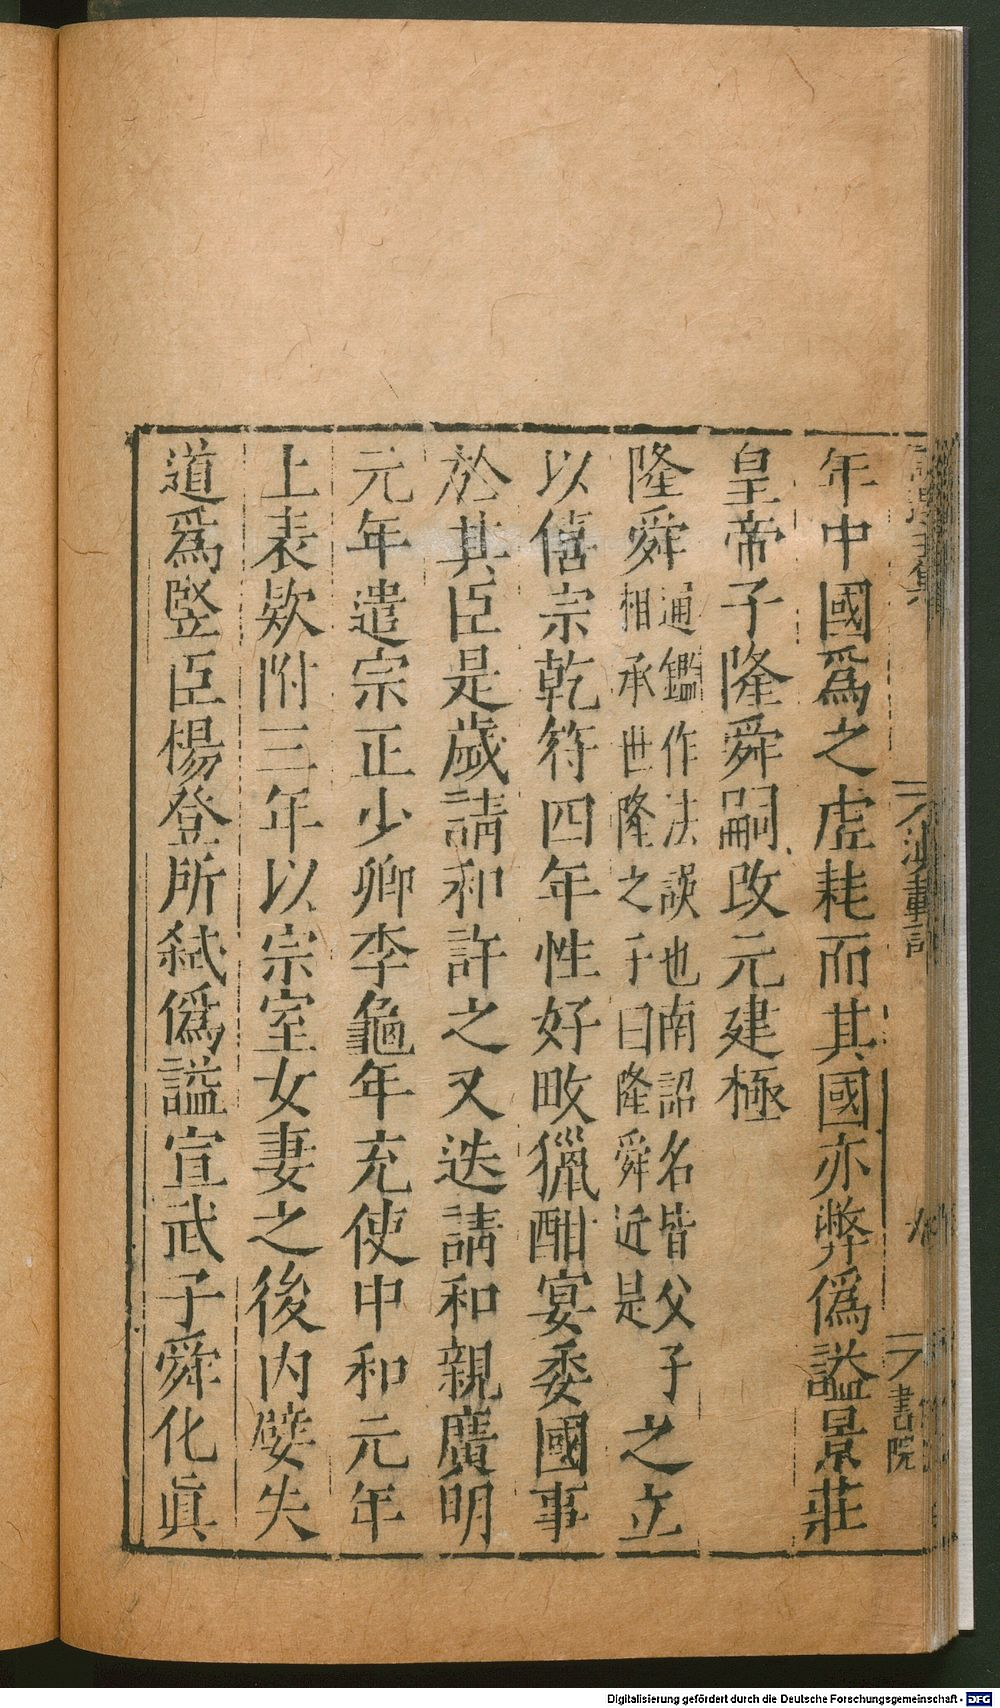 年中國爲之虛耗而其國亦弊僞謚景莊
皇帝子隆舜嗣改元建極
隆舜通鑑作法誤也南詔名皆父子相承世隆之子曰隆舜近是之立
以僖宗乾符四年性好畋獵酣宴委國事
於其臣是歲請和許之又迭請和親廣明
元年遣宗正少卿李龜年充使中和元年
上表欵附三年以宗室女妻之後内嬖失
道爲竪臣楊登所弒僞謚宣武子舜化眞
滇載記
書院
Digitalisierung gefördert durch die Deutsche Forschungsgemeinschaft - DFG